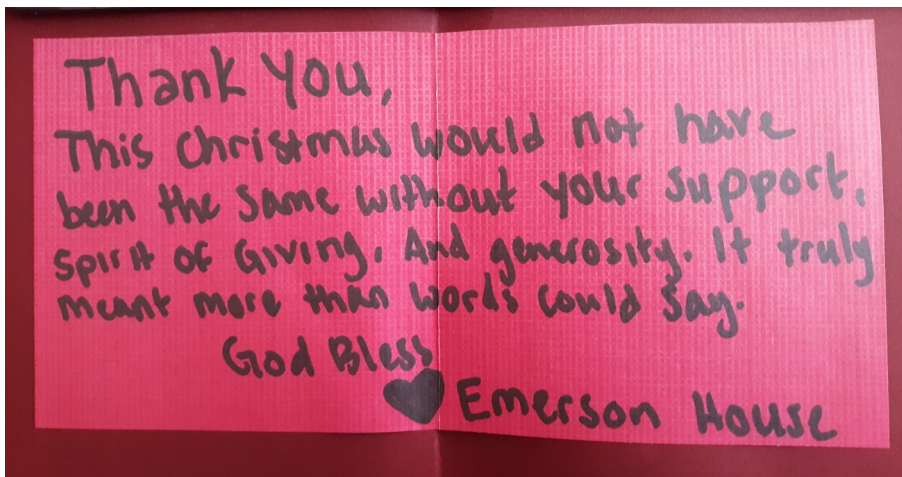 Thank You,
This Christmas would not have
been the same without your support,
spirit of Giving, And generosity. It truly
meant more than words could say.
God Bless
♥ Emerson House